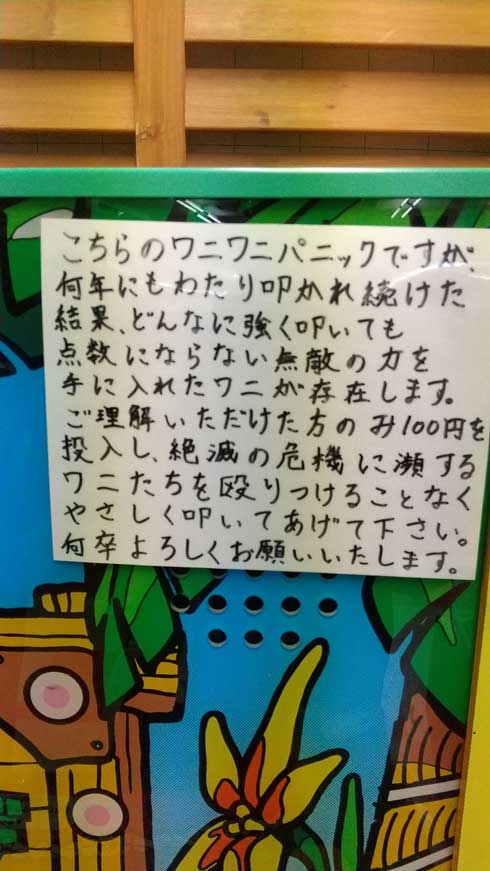 こちらのワニワニパニックですが、
何年にもわたり叩かれ続けた
結果、どんなに強く叩いても
点数にならない無敵の力を
手に入れたワニが存在します。
ご理解いただけた方のみ100円を
投入し、絶滅の危機に瀕する
ワニたちを殴りつけることなく
やさしく叩いてあげて下さい。
何卒よろしくお願いいたします。